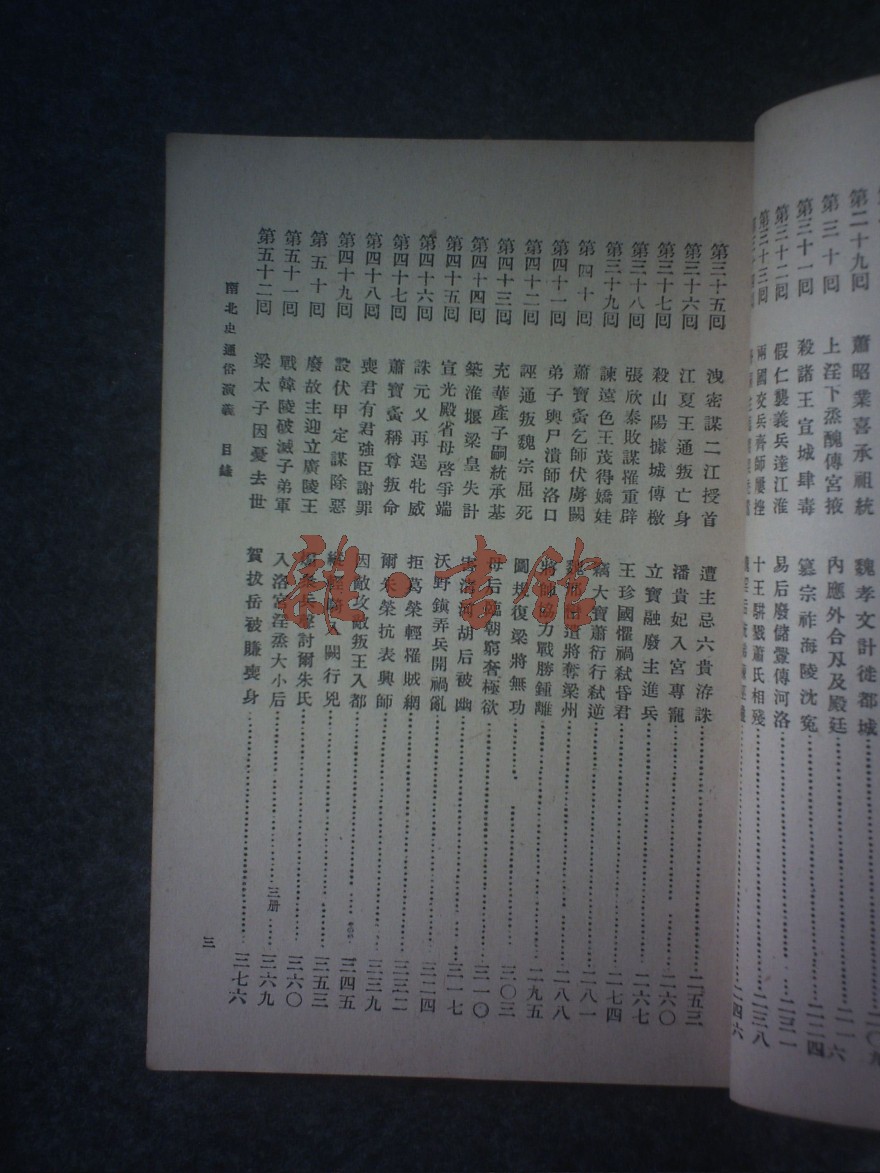 第二十九回　蕭昭業喜承祖統　魏孝文計徙都城
第三十回　上淫下蒸醜傳宮掖　內應外合刄及殿廷　二一六
第三十一回　殺諸王宣城肆毒　篡宗祚海陵沈冤　二二四
第三十二回　假仁襲義兵達江淮　易后廢儲釁傳河洛　二三一
第三十三回　兩國交兵齊師屢挫　十王駢戮蕭氏相殘　二三八
二四六
第三十五回　洩密謀二江授首　遭主忌六貴洊誅　二五三
第三十六回　江夏王通叛亡身　潘貴妃入宮專寵　二六〇
第三十七回　殺山陽據城傳檄　立寶融廢主進兵　二六七
第三十八回　張欣泰敗謀罹重辟　王珍國懼禍弒昏君　二七四
第三十九回　諫遠色王茂得嬌娃　竊大寶蕭衍行弒逆　二八一
第四十回　蕭寶夤乞師伏虜闕　魏邢巒遣將奪梁州　二八八
第四十一回　弟子輿尸潰師洛口　將帥協力戰勝鍾離　二九五
第四十二回　誣通叛魏宗屈死　圖規復梁將無功　三〇三
第四十三回　充華產子嗣統承基　母后臨朝窮奢極欲　三一〇
第四十四回　築淮堰梁皇失計　害清河胡后被幽　三一七
第四十五回　宣光殿省母啓爭端　沃野鎭弄兵開禍亂　三二四
第四十六回　誅元乂再逞牝威　拒葛榮輕罹賊網　三三二
第四十七回　蕭寶夤稱尊叛命　爾朱榮抗表興師　三三九
第四十八回　喪君有君強臣謝罪　因敵攻敵叛王入都　三四五
第四十九回　設伏甲定謀除惡　縱輕騎入闕行兇　三五三
第五十回　廢故主迎立廣陵王　討爾朱氏　三六〇
第五十一回　戰韓陵破滅子弟軍　入洛宮淫蒸大小后　三册　三六九
第五十二回　梁太子因憂去世　賀拔岳被賺喪身　三七六
南北史通俗演義　目錄　三
雜·書館